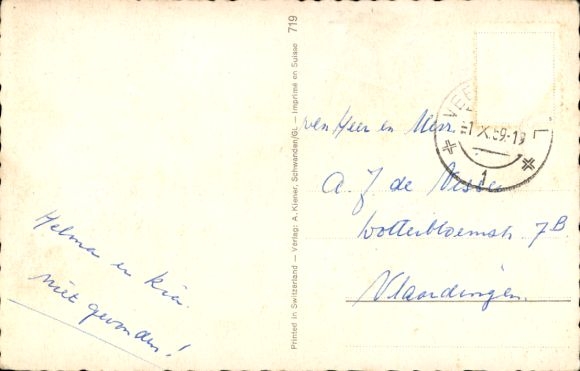 Helma en Ria
niet gevonden!
Printed in Switzerland — Verlag: A. Kiener, Schwanden/Gl. — Imprimé en Suisse 719
VEE L
-1 X.59-19
1
Heer en Mevr.
A. J de Visser
Botterbloemstr. 7B
Vlaardingen.